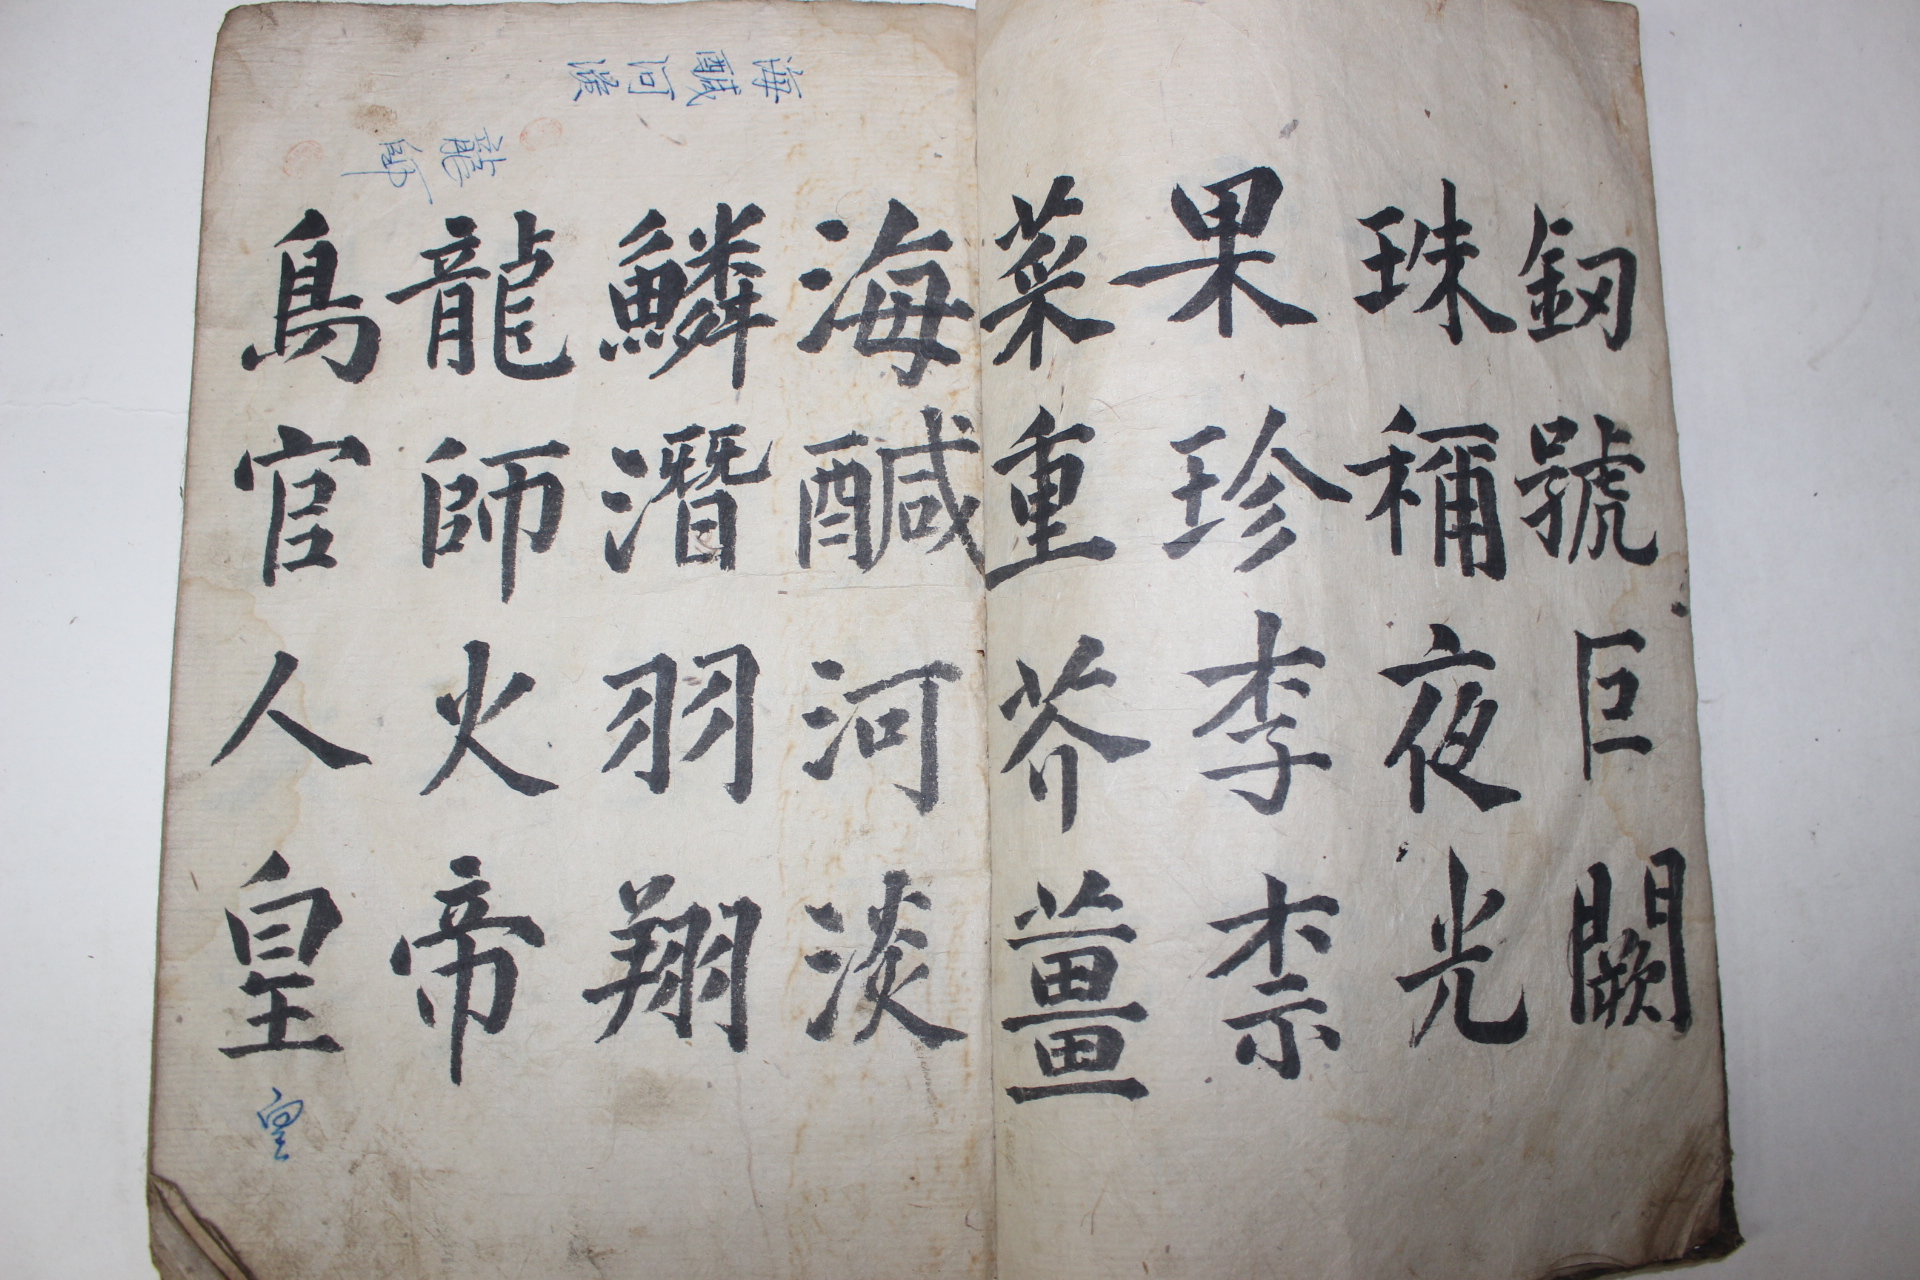 釼號巨闕
珠稱夜光
果珍李柰
菜重芥薑
海醎河淡
鱗潛羽翔
龍師火帝
鳥官人皇
海醎河淡
龍師
皇